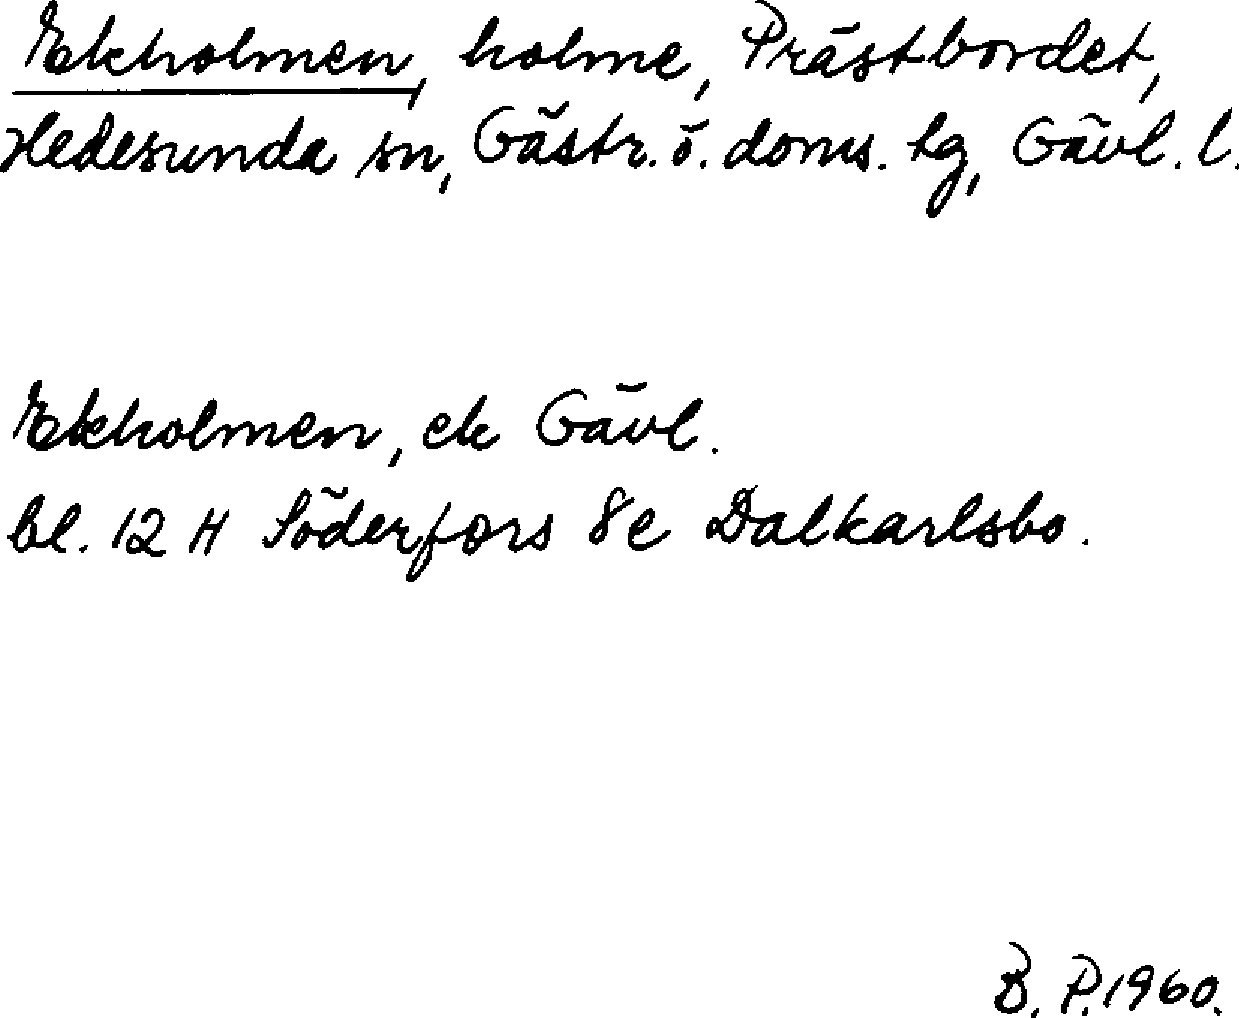 Ekholmen, holme, Prästbordet,
Hedesunda sn, Gästr. ö. doms. tg, Gävl. l.
Ekholmen, ek Gävl.
bl. 12 H Söderfors 8e Dalkarlsbo.
B. P. 1960.